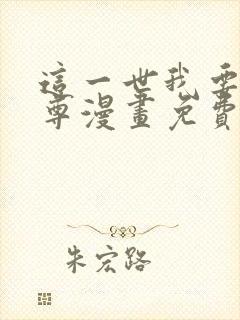 這一世我要
尊漫畫免費
朱宏路